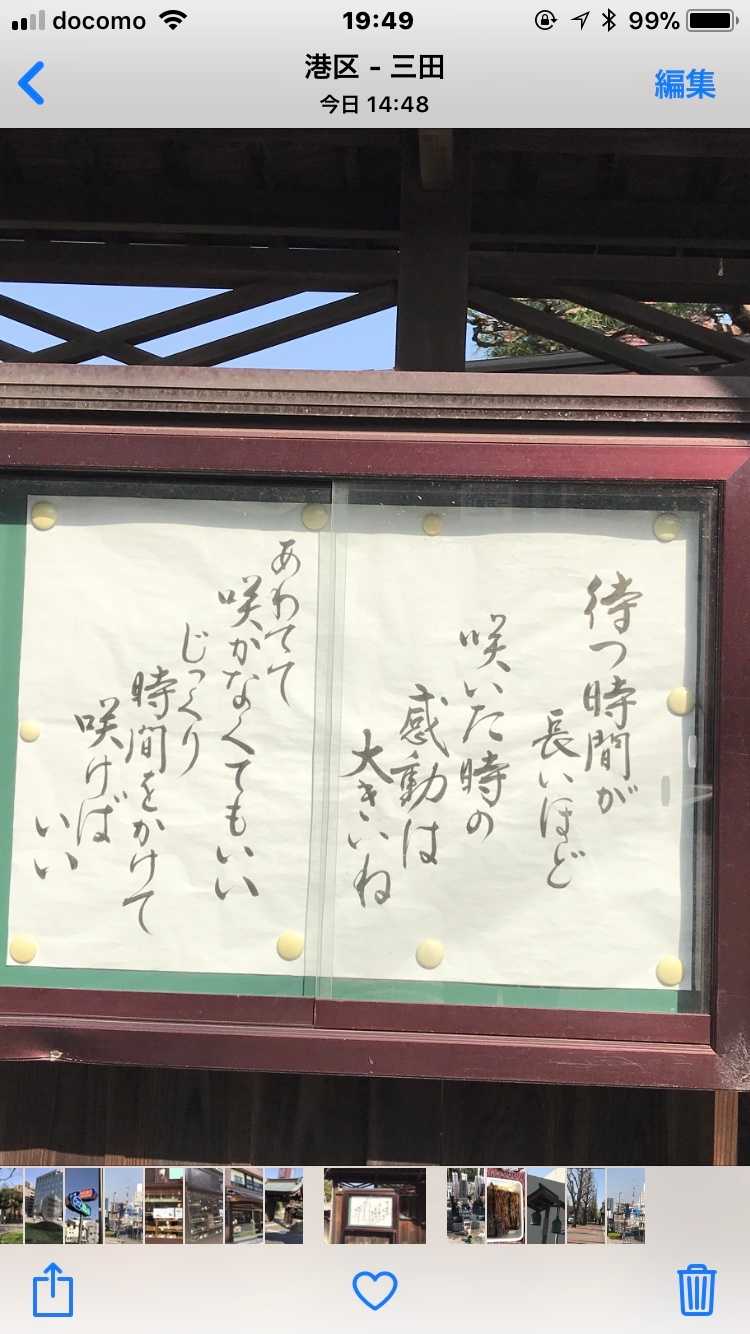 docomo 19:49 99%
港区 - 三田
今日 14:48
編集
待つ時間が
長いほど
咲いた時の
感動は
大きいね
あわてて
咲かなくてもいい
じっくり
時間をかけて
咲けば
いい